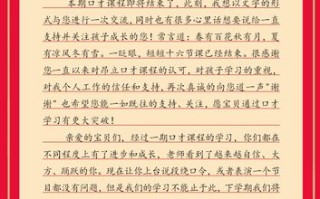 本期口才课程即将结束了，此刻，我想以文字的形式与您进行一次交流，同时也有很多心里话想要说给一直支持并关注孩子成长的您！常言道：春有百花秋有月，夏有凉风冬有雪。一眨眼，短短十六节课已经结束。很感谢您一直以来对昂立口才课程的认可，对孩子学习的重视，对我个人工作的信任和支持，再次真诚的向您说声"谢谢"也希望您能一如既往的支持，关注，愿宝贝通过口才学习有更大突破！
亲爱的宝贝们，经过一期口才课程的学习，你们都在不同程度上有了进步和成长，老师看到了越来越自信、大方、踊跃的你，现在让你上台说段绕口令，或者表演一个节目都没有问题，但是我们的学习不能止于此，下学期我们将